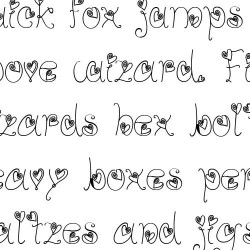 uick fox jumps
bove wizard. Fi
izards hex bolt
eavy boxes per
altzes and jigs